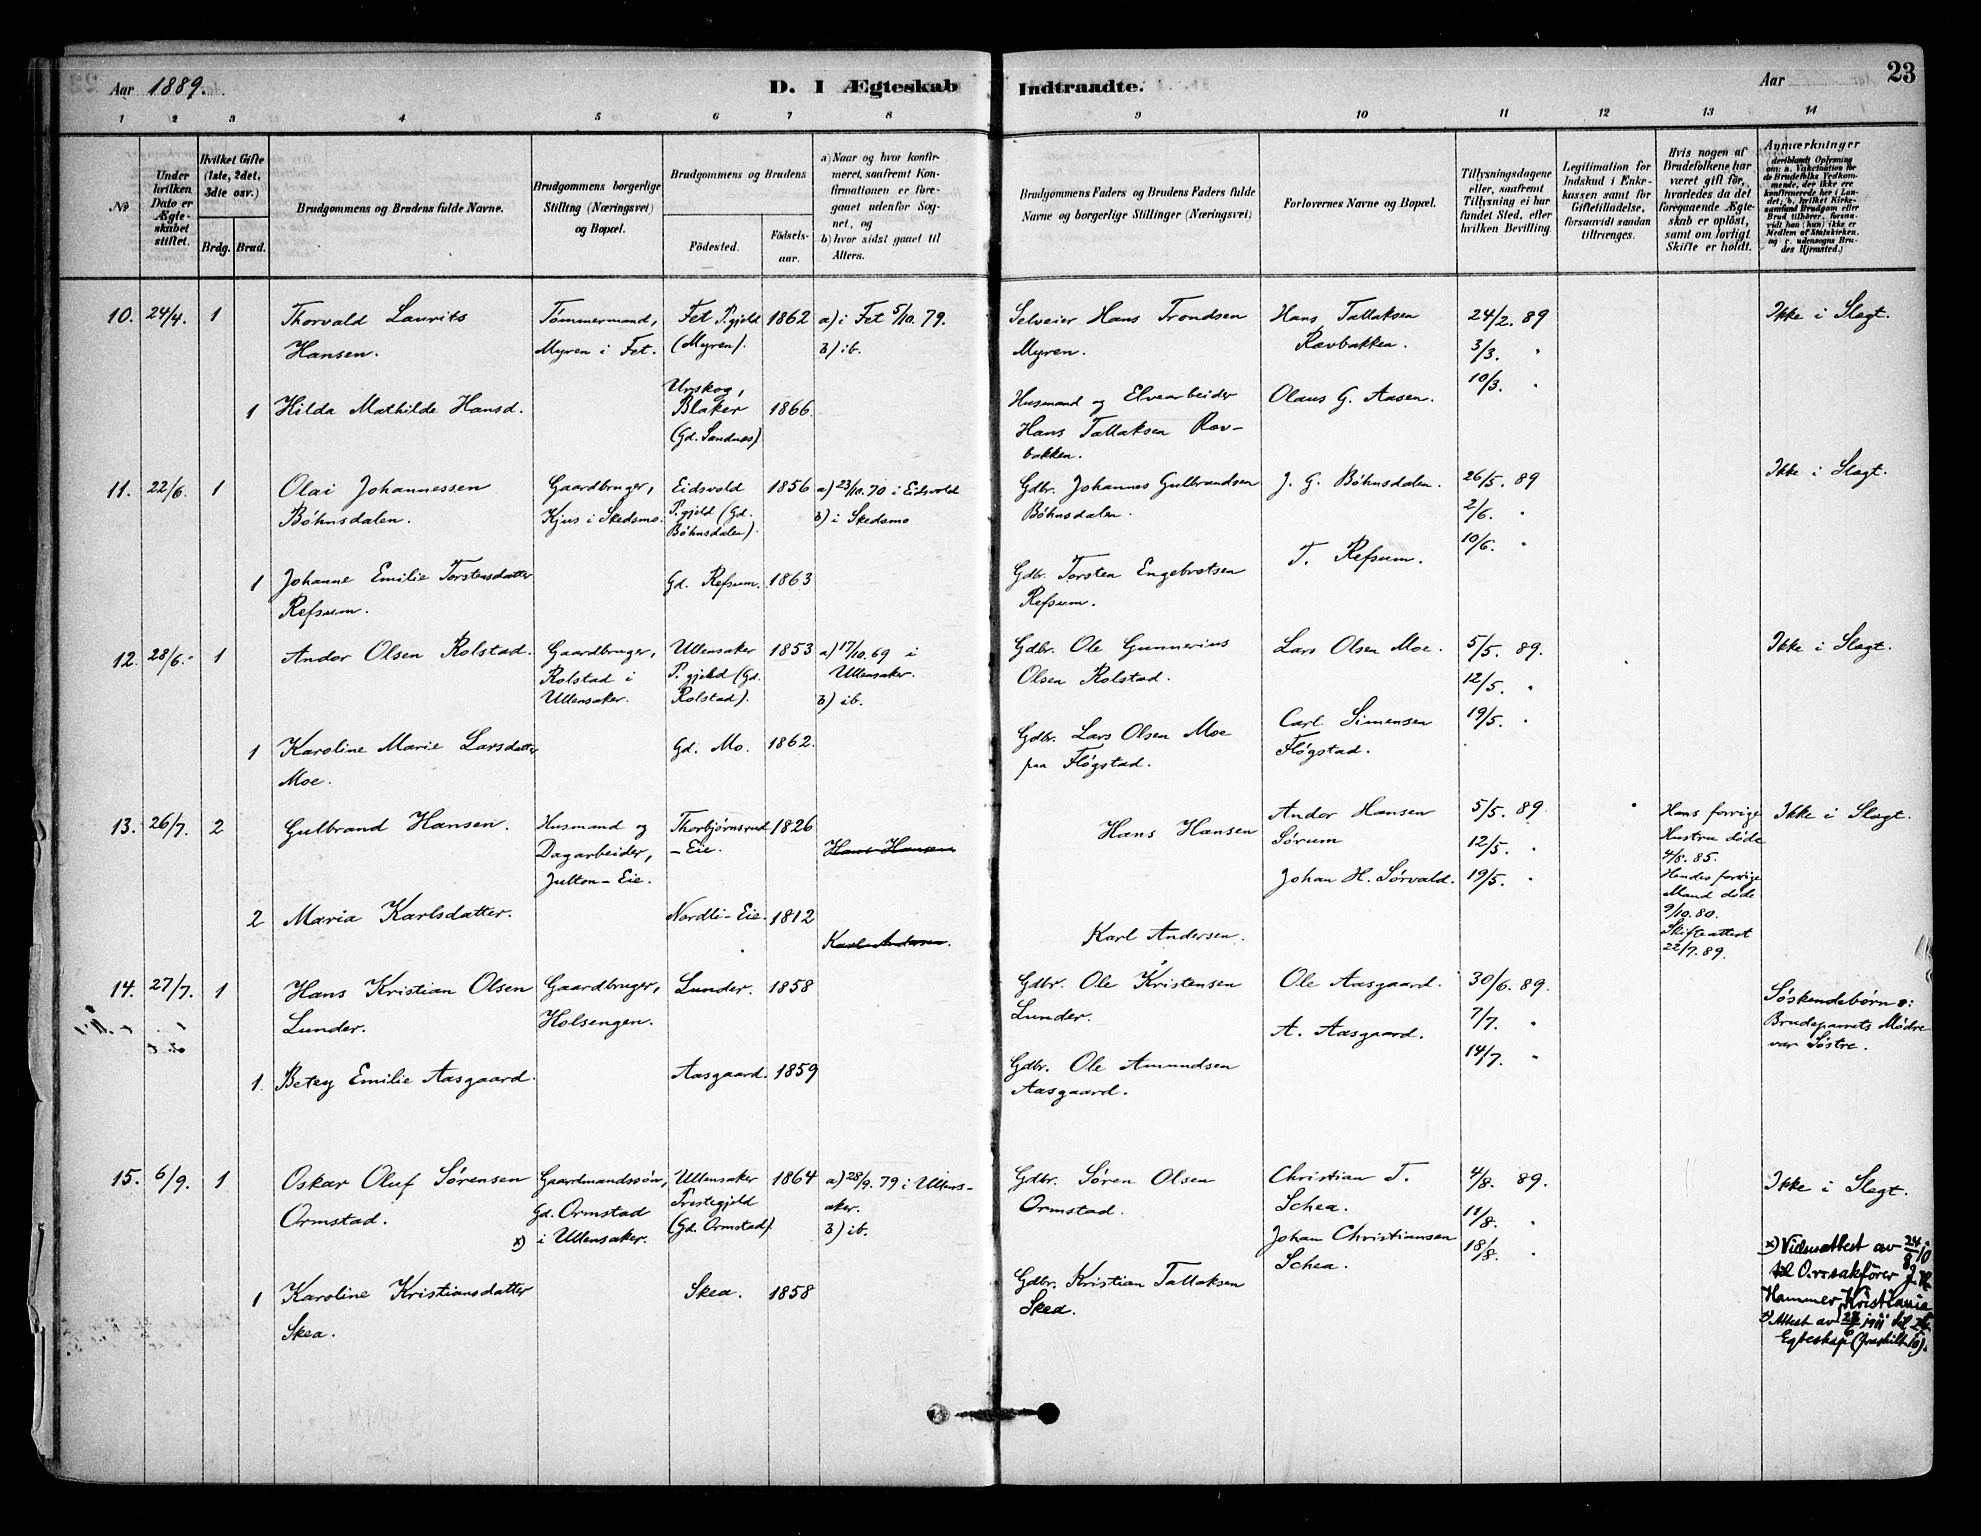 Aar 1889.
D. I Ægteskab Indtraadte.
Aar
23
1 2 3 4 5 6 7 8 9 10 11 12 13 14
No
Under hvilken Dato er Ægteskabet stiftet.
Hvilket Gifte (1ste, 2det, 3die osv.)
Brdg. Brud.
Brudgommens og Brudens fulde Navne.
Brudgommens borgerlige Stilling (Næringsvei) og Bopæl.
Brudgommens og Brudens
Födested. Födselsaar.
a) Naar og hvor konfirmeret, saafremt Konfirmationen er foregaaet udenfor Sognet, og
b) hvor sidst gaaet til Alters.
Brudgommens Faders og Brudens Faders fulde Navne og borgerlige Stillinger (Næringsvei)
Forlovernes Navne og Bopæl.
Tillysningsdagene eller, saafremt Tillysning ei har fundet Sted, efter hvilken Bevilling.
Legitimation for Indskud i Enkekassen samt for Giftetilladelse, forsaavidt saadan tiltrænges.
Hvis nogen af Brudefolkene har været gift för, hvorledes da det foregaaende Ægteskab er oplöst, samt om lovligt Skifte er holdt.
Anmærkninger
10. 24/4. 1
Thorvald Laurits
Hansen.
Tømmermand,
Myren i Fet.
Fet P.gjeld
(Myren).
1862
a) i Fet 5/10. 79.
b) ib.
Selveier Hans Trondsen
Myren.
Hans Tallaksen
Ravbakken.
24/2. 89
3/3. "
10/3. "
Ikke i Slegt.
1 Hilda Mathilde Hansd.
Urskog,
Blaker
(Gd. Sandnes)
1866.
Husmand og Elvearbeider
Hans Tallaksen Rav-
bakken.
Olaus G. Aasen.
11. 22/6. 1
Olai Johannessen
Bøhnsdalen.
Gaardbruger,
Kjus i Skedsmo.
Eidsvold
P.gjeld (Gd.
Bøhnsdalen).
1856
a) 23/10. 70 i Eidsvold
b) i Skedsmo
Gdbr. Johannes Gulbrandsen
Bøhnsdalen.
J. G. Bøhnsdalen.
26/5. 89
2/6. "
10/6. "
Ikke i Slegt.
1 Johanne Emilie Torstensdatter
Refsum.
Gd. Refsum.
1863
Gdbr. Torsten Engebretsen
Refsum.
T. Refsum.
12. 28/6. 1
Andor Olsen Rolstad.
Gaardbruger,
Rolstad i
Ullensaker.
Ullensaker
P.gjeld (Gd.
Rolstad).
1853
a) 17/10. 69 i
Ullensaker.
b) ib.
Gdbr. Ole Gunnerius
Olsen Rolstad.
Lars Olsen Moe.
5/5. 89.
12/5. "
19/5. "
Ikke i Slegt.
1 Karoline Marie Larsdatter
Moe.
Gd. Mo.
1862.
Gdbr. Lars Olsen Moe
paa Fløgstad.
Carl Simensen
Fløgstad.
13. 26/7. 2
Gulbrand Hansen.
Husmand og
Dagarbeider,
Julton-Eie.
Thorbjørnsrud
-Eie.
1826
Hans Hansen
Hans Hansen
Andor Hansen
Sørum
Johan H. Sørvald.
5/5. 89.
12/5. "
19/5. "
Hans forrige
Hustru døde
4/8. 85.
Hendes forrige
Mand døde
9/10. 80.
Skifteattest
22/7. 89.
Ikke i Slegt.
2 Maria Karlsdatter.
Nordli-Eie.
1812
Karl Andersen.
Karl Andersen.
14. 27/7. 1
Hans Kristian Olsen
Lunder.
Gaardbruger,
Holsengen.
Lunder.
1858
Gdbr. Ole Kristensen
Lunder.
Ole Aasgaard.
A. Aasgaard.
30/6. 89.
7/7. "
14/7. "
Søskendebørn o:
Brudeparrets Mødre
var Søstre.
1. Betey Emilie Aasgaard.
Aasgaard.
1859
Gdbr. Ole Amundsen
Aasgaard.
15. 6/9. 1
Oskar Oluf Sørensen
Ormstad.
Gaardmandssøn,
Gd. Ormstad
x) i Ullensaker.
Ullensaker
Prestegjeld
(Gd. Ormstad).
1864
a) 28/9. 79 i Ullens-
aker.
b) ib.
Gdbr. Søren Olsen
Ormstad.
Christian T.
Schea.
Johan Christiansen
Schea.
4/8. 89.
11/8. "
18/8. "
Ikke i Slegt.
1 Karoline Kristiansdatter
Skea.
Skea.
1858
Gdbr. Kristian Tallaksen
Skea.
x) Vielsesattest av 24/8 10
til O.r.sakfører
Hammer, Kristiania
Attest av 1911 til
Egteskap